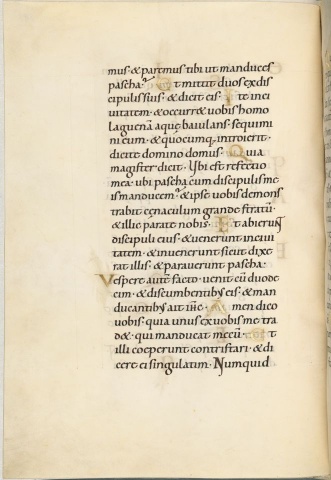 mus·& paremus tibi ut manduces
pascha· Et mittit duos ex dis
cipulis suis· & dicit eis· Ite in ci
uitatem· & occurr& uobis homo
lagenā aquę baiulans· sequimi
ni eum· & quocumq; introierit·
dicite domino domus· Quia
magister dicit· Ubi est refectio
mea· ubi pascha cum discipulis me
is manducem· & ipse uobis demons
trabit cęnaculum grande stratū·
& illic parate nobis· Et abierunt
discipuli eius· & uenerunt in ciui
tatem· & inuenerunt sicut dixe
rat illis· & parauerunt pascha·
Vespere autē facto· uenit cū duode
cim· & discumbentibus eis· & man
ducantibus ait ihc· Amen dico
uobis· quia unus ex uobis me tra
d&· qui manducat mecū· At
illi coeperunt contristari· & di
cere ei singulatim· Numquid